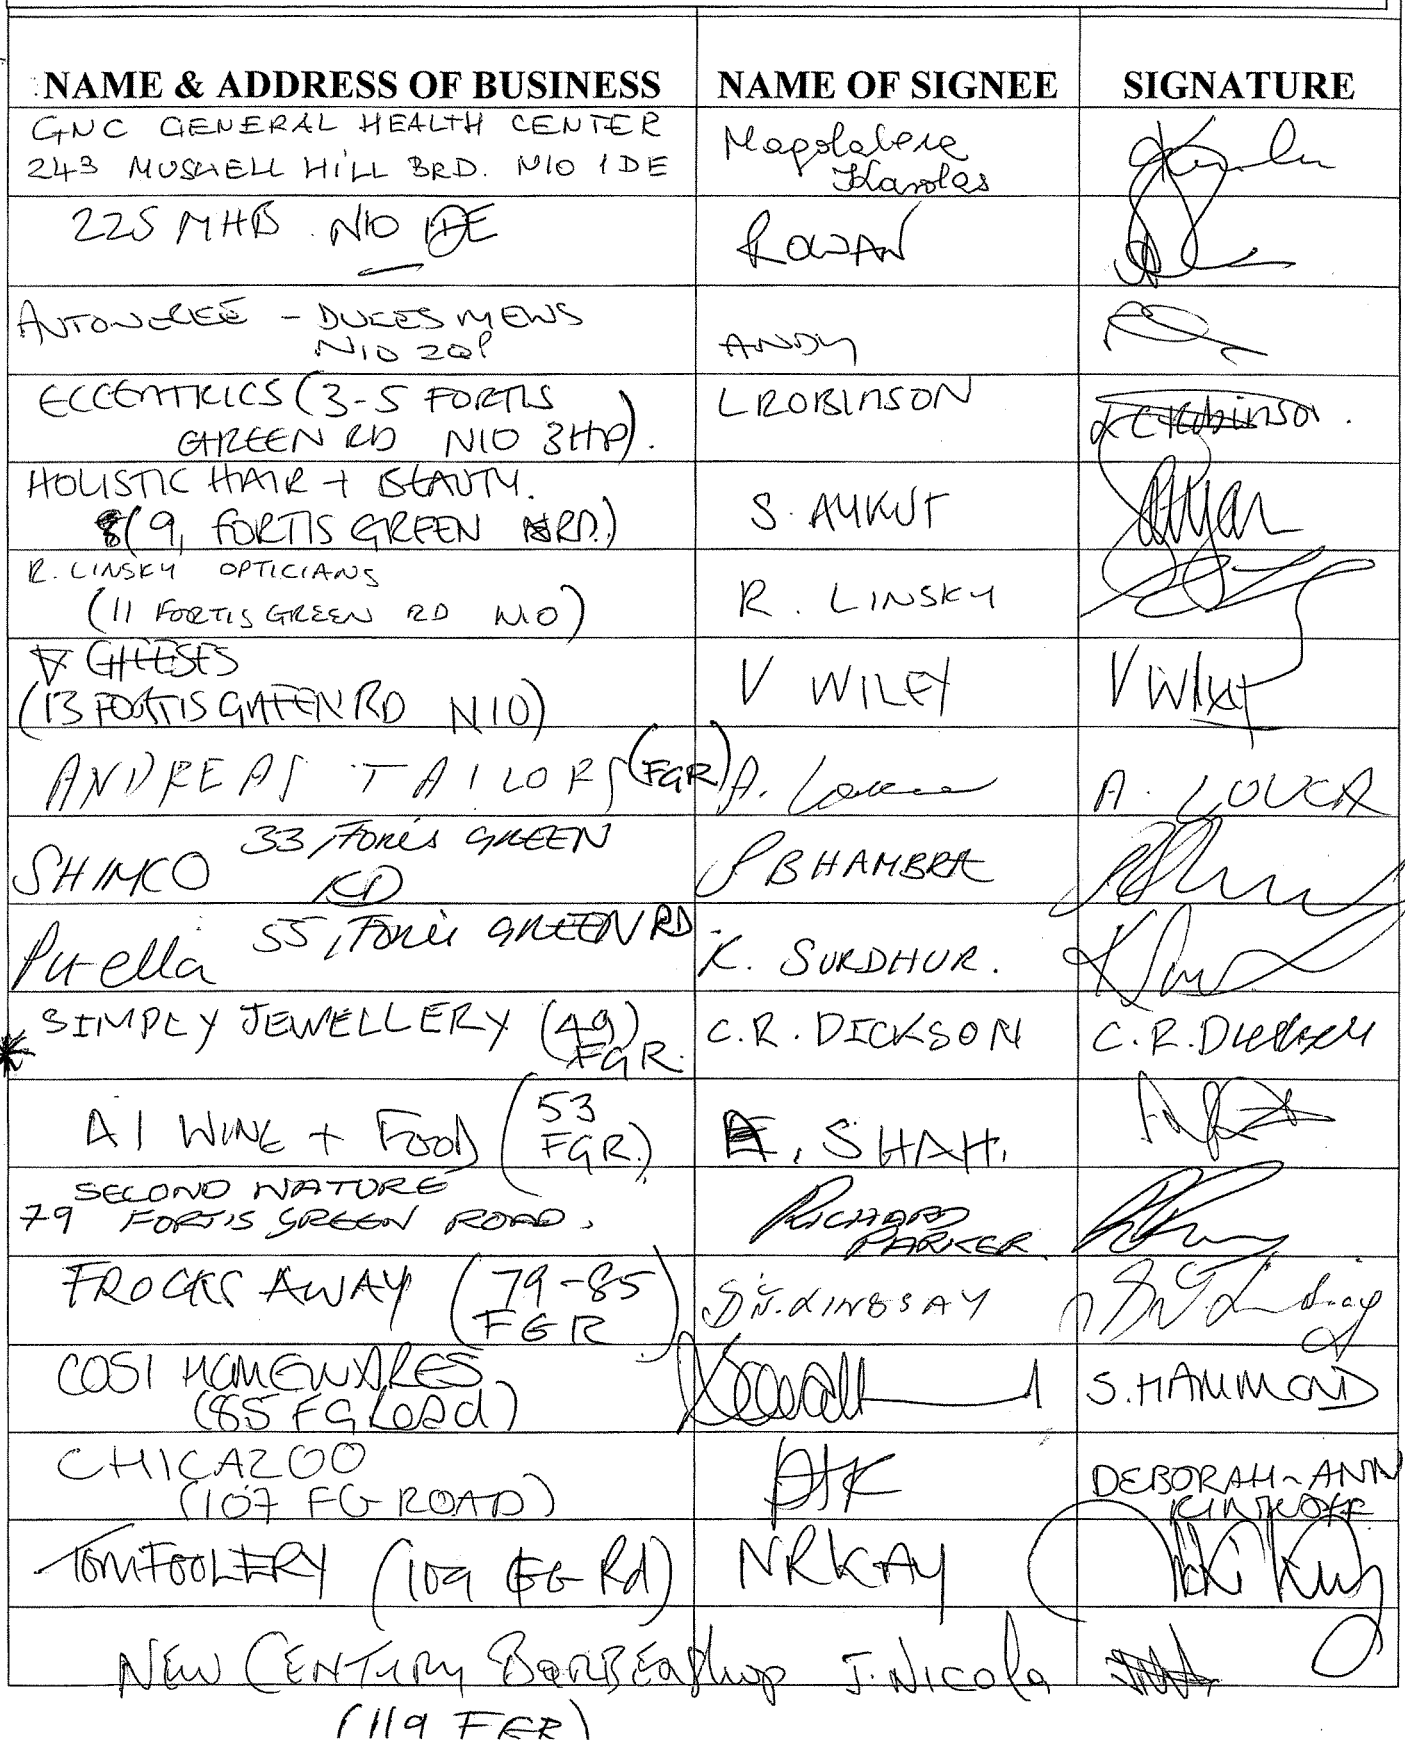 NAME & ADDRESS OF BUSINESS NAME OF SIGNEE SIGNATURE
GNC GENERAL HEALTH CENTER
243 MUSWELL HILL BRD. N10 1DE
225 MHB. N10 1DE ROWAN
DUKES MEWS
N10 2QP ANDY
ECCENTRICS (3-5 FORTIS L ROBINSON L C Robinson.
GREEN RD N10 3HP).
HOLISTIC HAIR + BEAUTY.
(9, FORTIS GREEN RD.) S. AYKUT
R. LINSKY OPTICIANS
(11 FORTIS GREEN RD N10) R. LINSKY
CHEESES
(13 FORTIS GREEN RD N10) V WILEY V Wiley
ANDREAS TAILORS (FGR) A. Louca A. LOUCA
SHIMCO 33, FORTIS GREEN
RD P BHAMBRA
Purella 55, FORTIS GREEN RD K. SURDHUR.
SIMPLY JEWELLERY (49) C.R. DICKSON C.R. Dickson
FGR.
A1 WINE + FOOD (53
FGR.) SHAH.
SECOND NATURE
79 FORTIS GREEN ROAD. RICHARD
PARKER
FROCKS AWAY (79-85
FGR) LINDSAY
COSI HOMEWARES S. HAMMOND
(85 FG Road)
CHICAZOO
(107 FG ROAD) DEBORAH-ANN
TOMFOOLERY (109 FG Rd) NRKAY
NEW CENTURY BARBERShop J. NICOLA
(119 FGR)